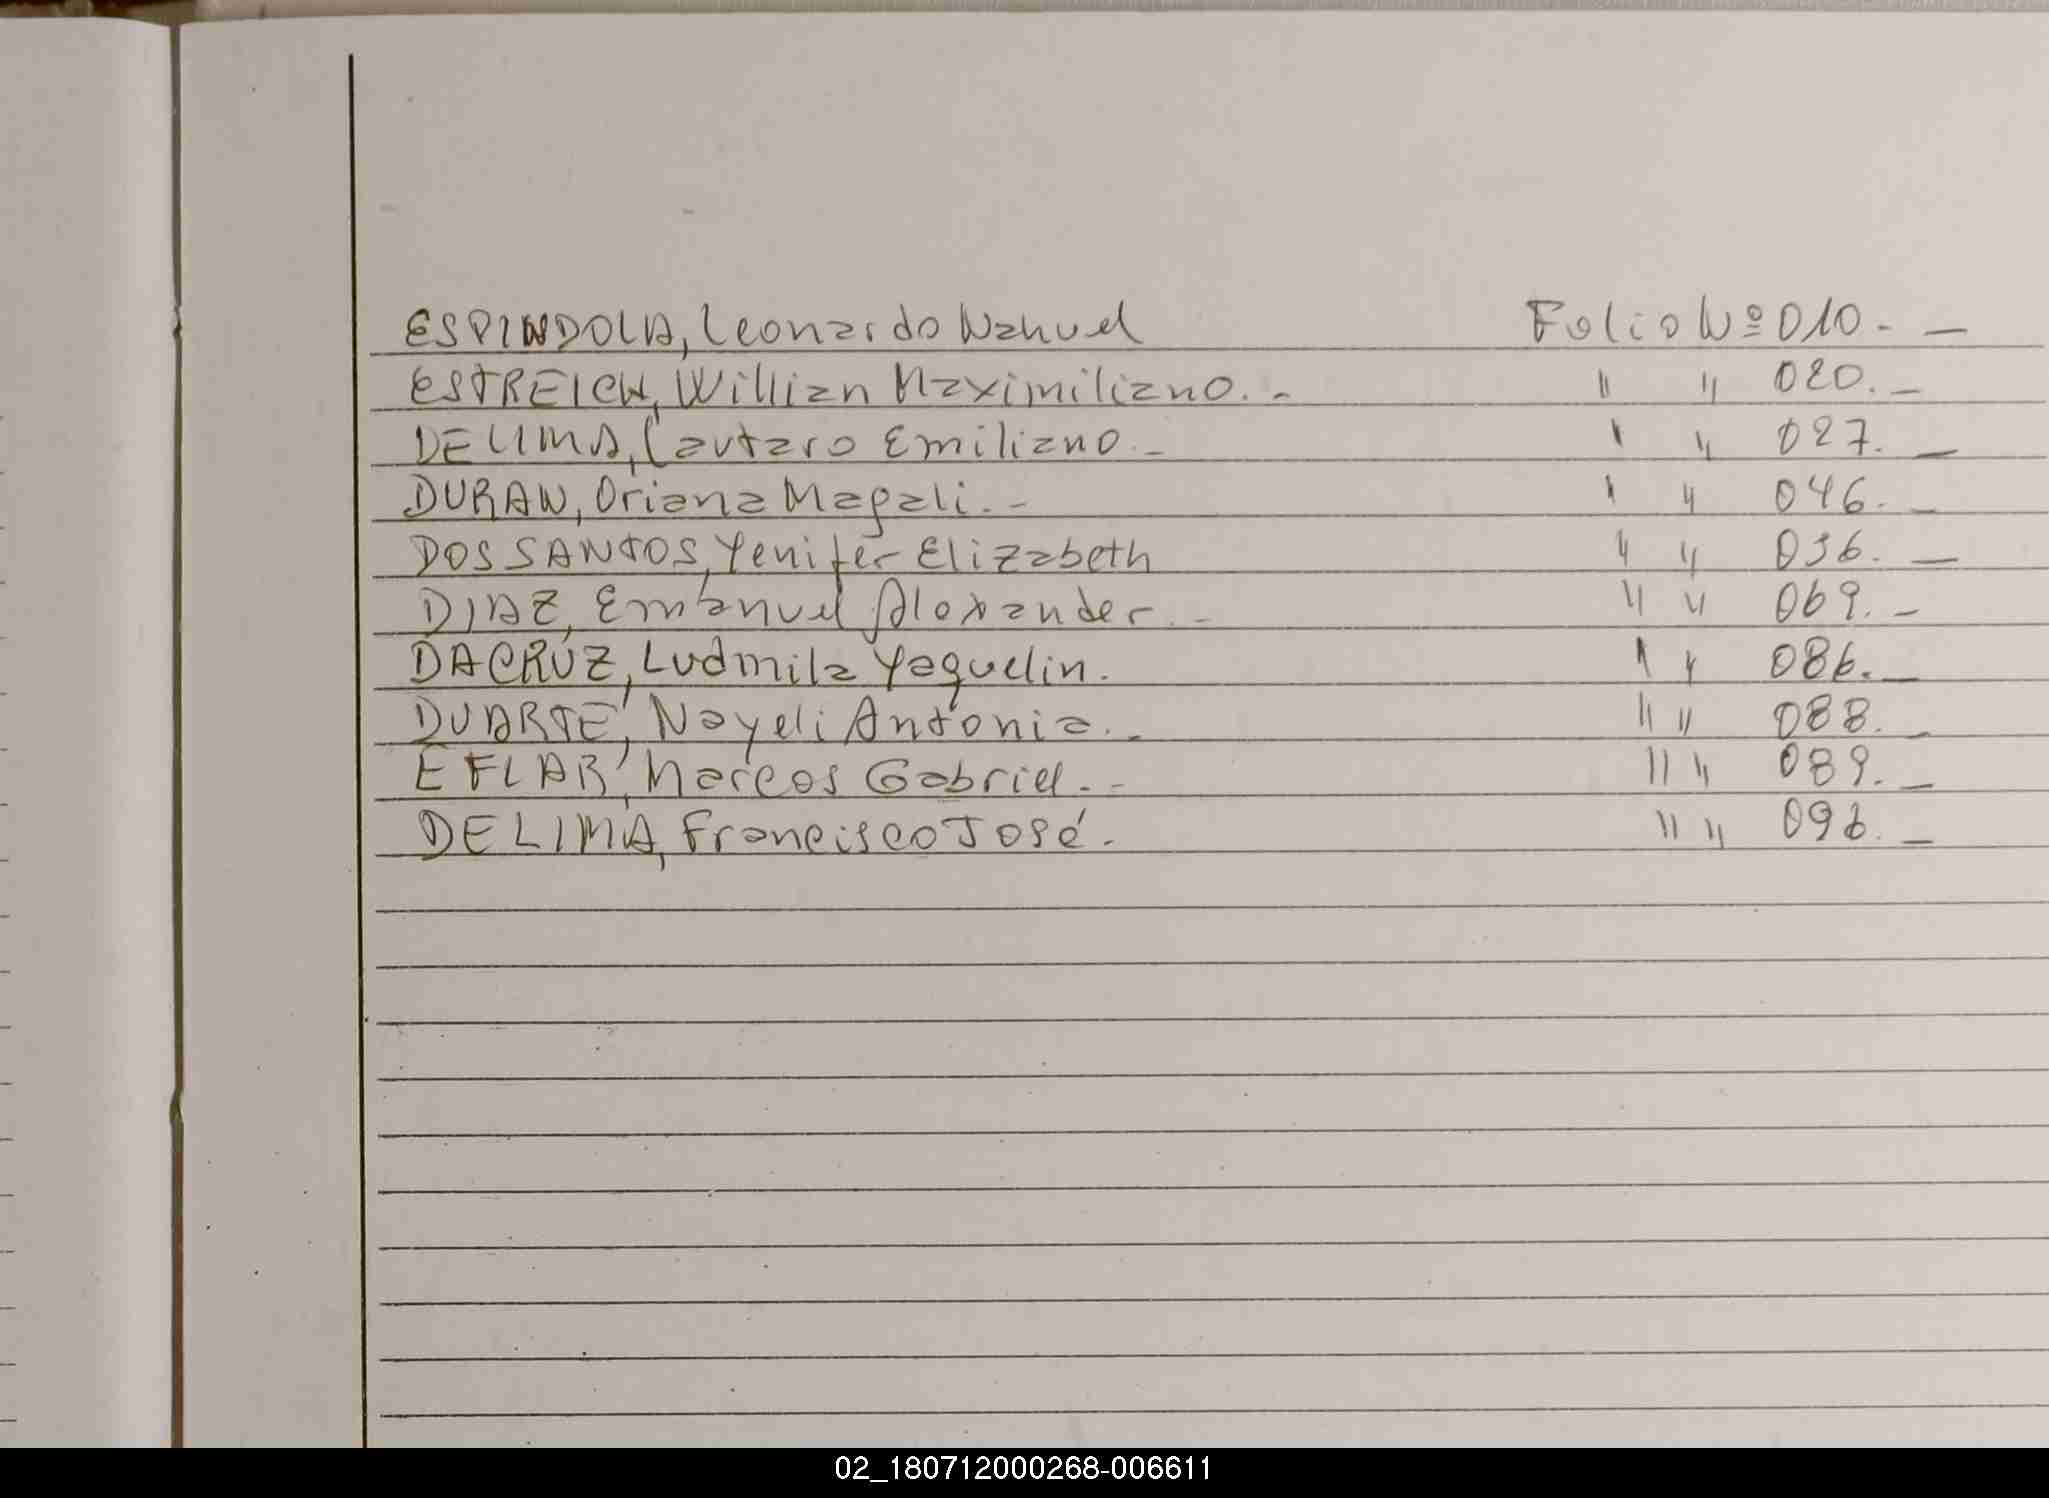 ESPINDOLA, Leonardo Nahuel Folio Nº 010. —
ESTREICH, Willian Maximiliano. - " " 020. —
DE LIMA, Lautaro Emiliano. - " " 027. —
DURAN, Oriana Magali. - " " 046. —
DOS SANTOS, Yenifer Elizabeth " " 036. —
DIAZ, Emanuel Alexander. - " " 069. —
DA CRUZ, Ludmila Yaquelin. " " 086. —
DUARTE, Nayeli Antonia. - " " 088. —
EFLAR, Marcos Gabriel. - " " 089. —
DE LIMA, Francisco José. " " 096. —
02_180712000268-006611